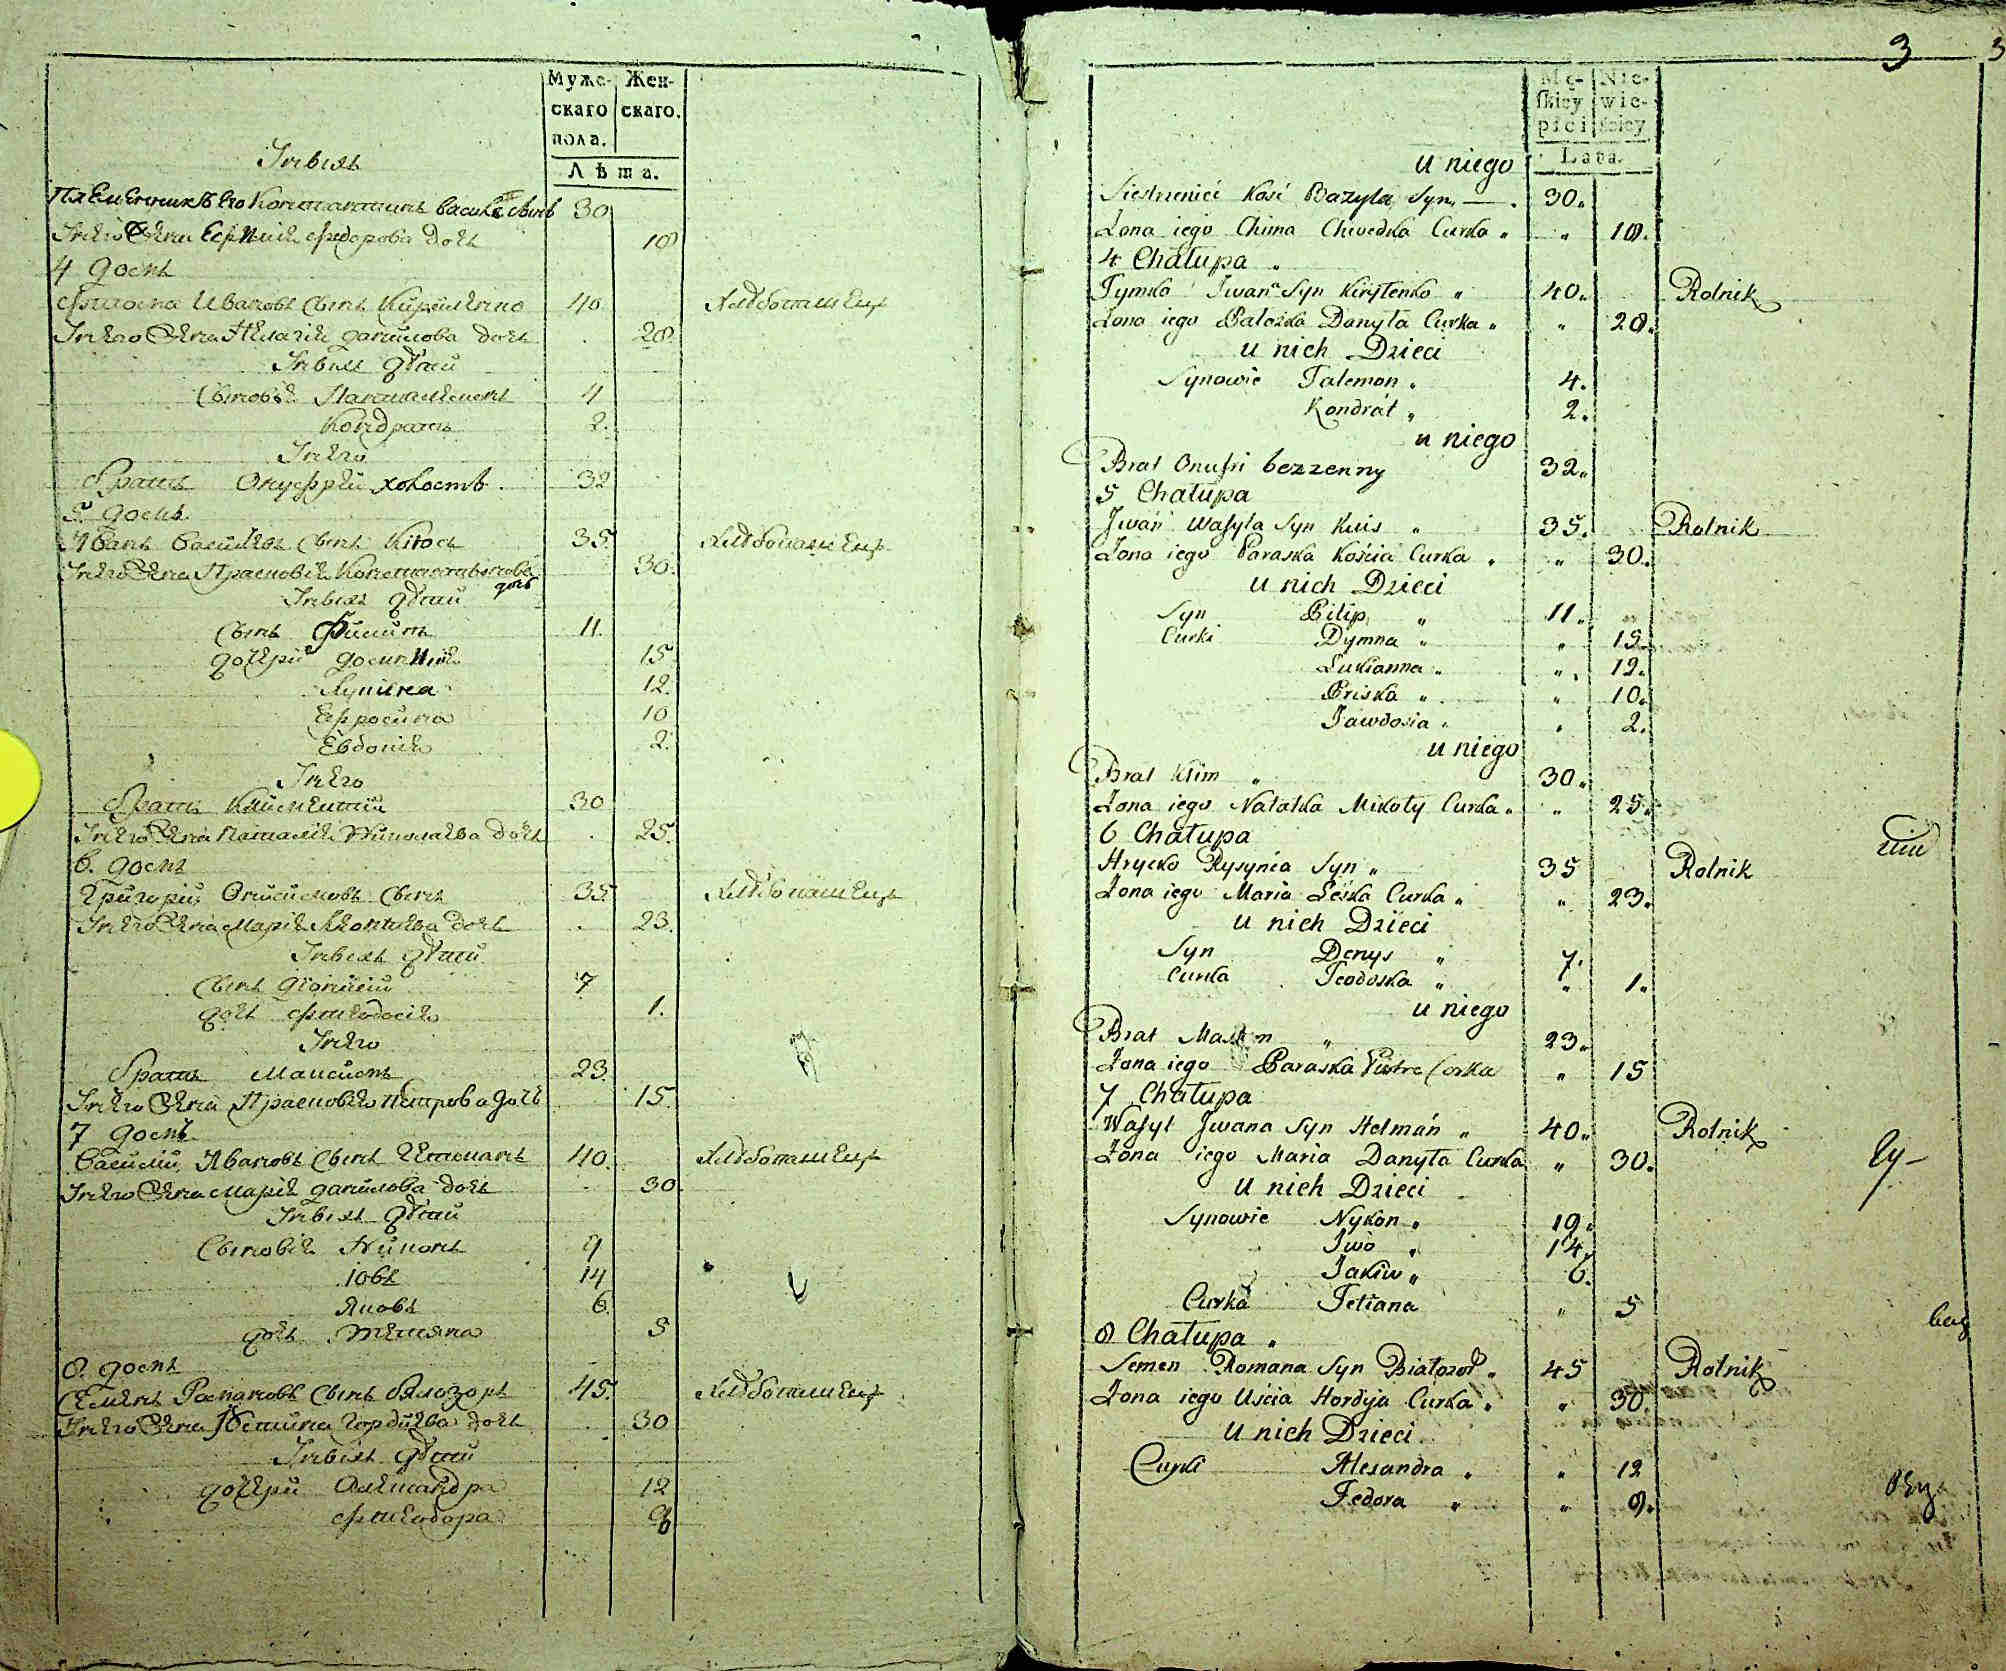 Муже-
скаго
пола.
Жен-
скаго.
Лѣта.
У нихъ
Племенникъ его Константинъ Васильевъ 30
У него Жена Евфимия Федорова дочь 18
4 домъ
Иванов Сынъ Кириленко 40. Хлѣбопашецъ
У него Жена Пелагия Данилова дочь 28
У нихъ дѣти
Сыновья Пантелемонъ 4
Кондратъ 2.
У него
Братъ Онуфрий холостъ 32
5. домъ
Иванъ Васильевъ Сынъ 35. Хлѣбопашецъ
У него Жена Прасковия Константинова дочь 30.
У нихъ дѣти
Сынъ Филипъ 11.
дочери Домникия 15
12.
Ефросина 10
Евдокия 2.
У него
Братъ Климентий 30
У него Жена Наталия Николаева дочь 25.
6. домъ
Григорий Онисимовъ Сынъ 35. Хлѣбопашецъ
У него Жена Мария Леонтиева дочь 23.
У нихъ дѣти
Сынъ Дионисий 7
дочь Феодосия 1.
У него
Братъ Максимъ 23.
У него Жена Прасковия Петрова дочь 15.
7 домъ
Василий Ивановъ Сынъ Гетманъ 40. Хлѣбопашецъ
У него Жена Мария Данилова дочь 30.
У нихъ дѣти
Сыновья Никонъ 9
Іовъ 14
Яковъ 6.
дочь Татияна 5
8. домъ
Семенъ Романовъ Сынъ Бялозоръ 45. Хлѣбопашецъ
У него Жена Устина Гордиева дочь 30
У нихъ дѣти
дочери Александра 12
Феодора 8
3
Mę-
skiey
płci
Nie-
wie-
ściey
Lata.
u niego
Siestrzenici Kość Bazyla Syn — 30.
Żona iego Chima Chwedka Curka " " 18.
4 Chałupa "
Tymko Jwana Syn Kirylenko " 40. Rolnik
Żona iego Palażka Danyła Curka " " 28.
u nich Dzieci
Synowie Talemon " 4.
Kondrat " 2.
u niego
Brat Onufri bezzenny 32.
5 Chałupa
Jwan Wasyla Syn Kuis " 35. Rolnik
Żona iego Paraska Kościa Curka " " 30.
u nich Dzieci
Syn Pilip " 11. "
Curki Dymna " " 15.
Lukianna " " 12.
Priska " " 10.
Jawdosia " " 2.
u niego
Brat Klim " 30.
Żona iego Natalka Mikoły Curka " " 25.
6 Chałupa
Hrycko Rysynia Syn " 35 Rolnik
Żona iego Maria Leska Curka " " 23.
u nich Dzieci
Syn Denys " 7.
Curka Teodoska " " 1.
u niego
Brat Maxim " 23.
Żona iego Paraska Piotra Corka " 15
7 Chałupa
Wasyl Jwana Syn Hetmań " 40. Rolnik
Żona iego Maria Danyła Curka " 30.
u nich Dzieci
Synowie Nykon " 19.
Jwo " 14.
Jakiw " 6.
Curka Tetiana " 5
8 Chałupa "
Semen Romana Syn Białozor " 45 Rolnik
Żona iego Uścia Hordija Curka " " 30.
u nich Dzieci
Curki Alexandra " " 12
Fedora " " 8.